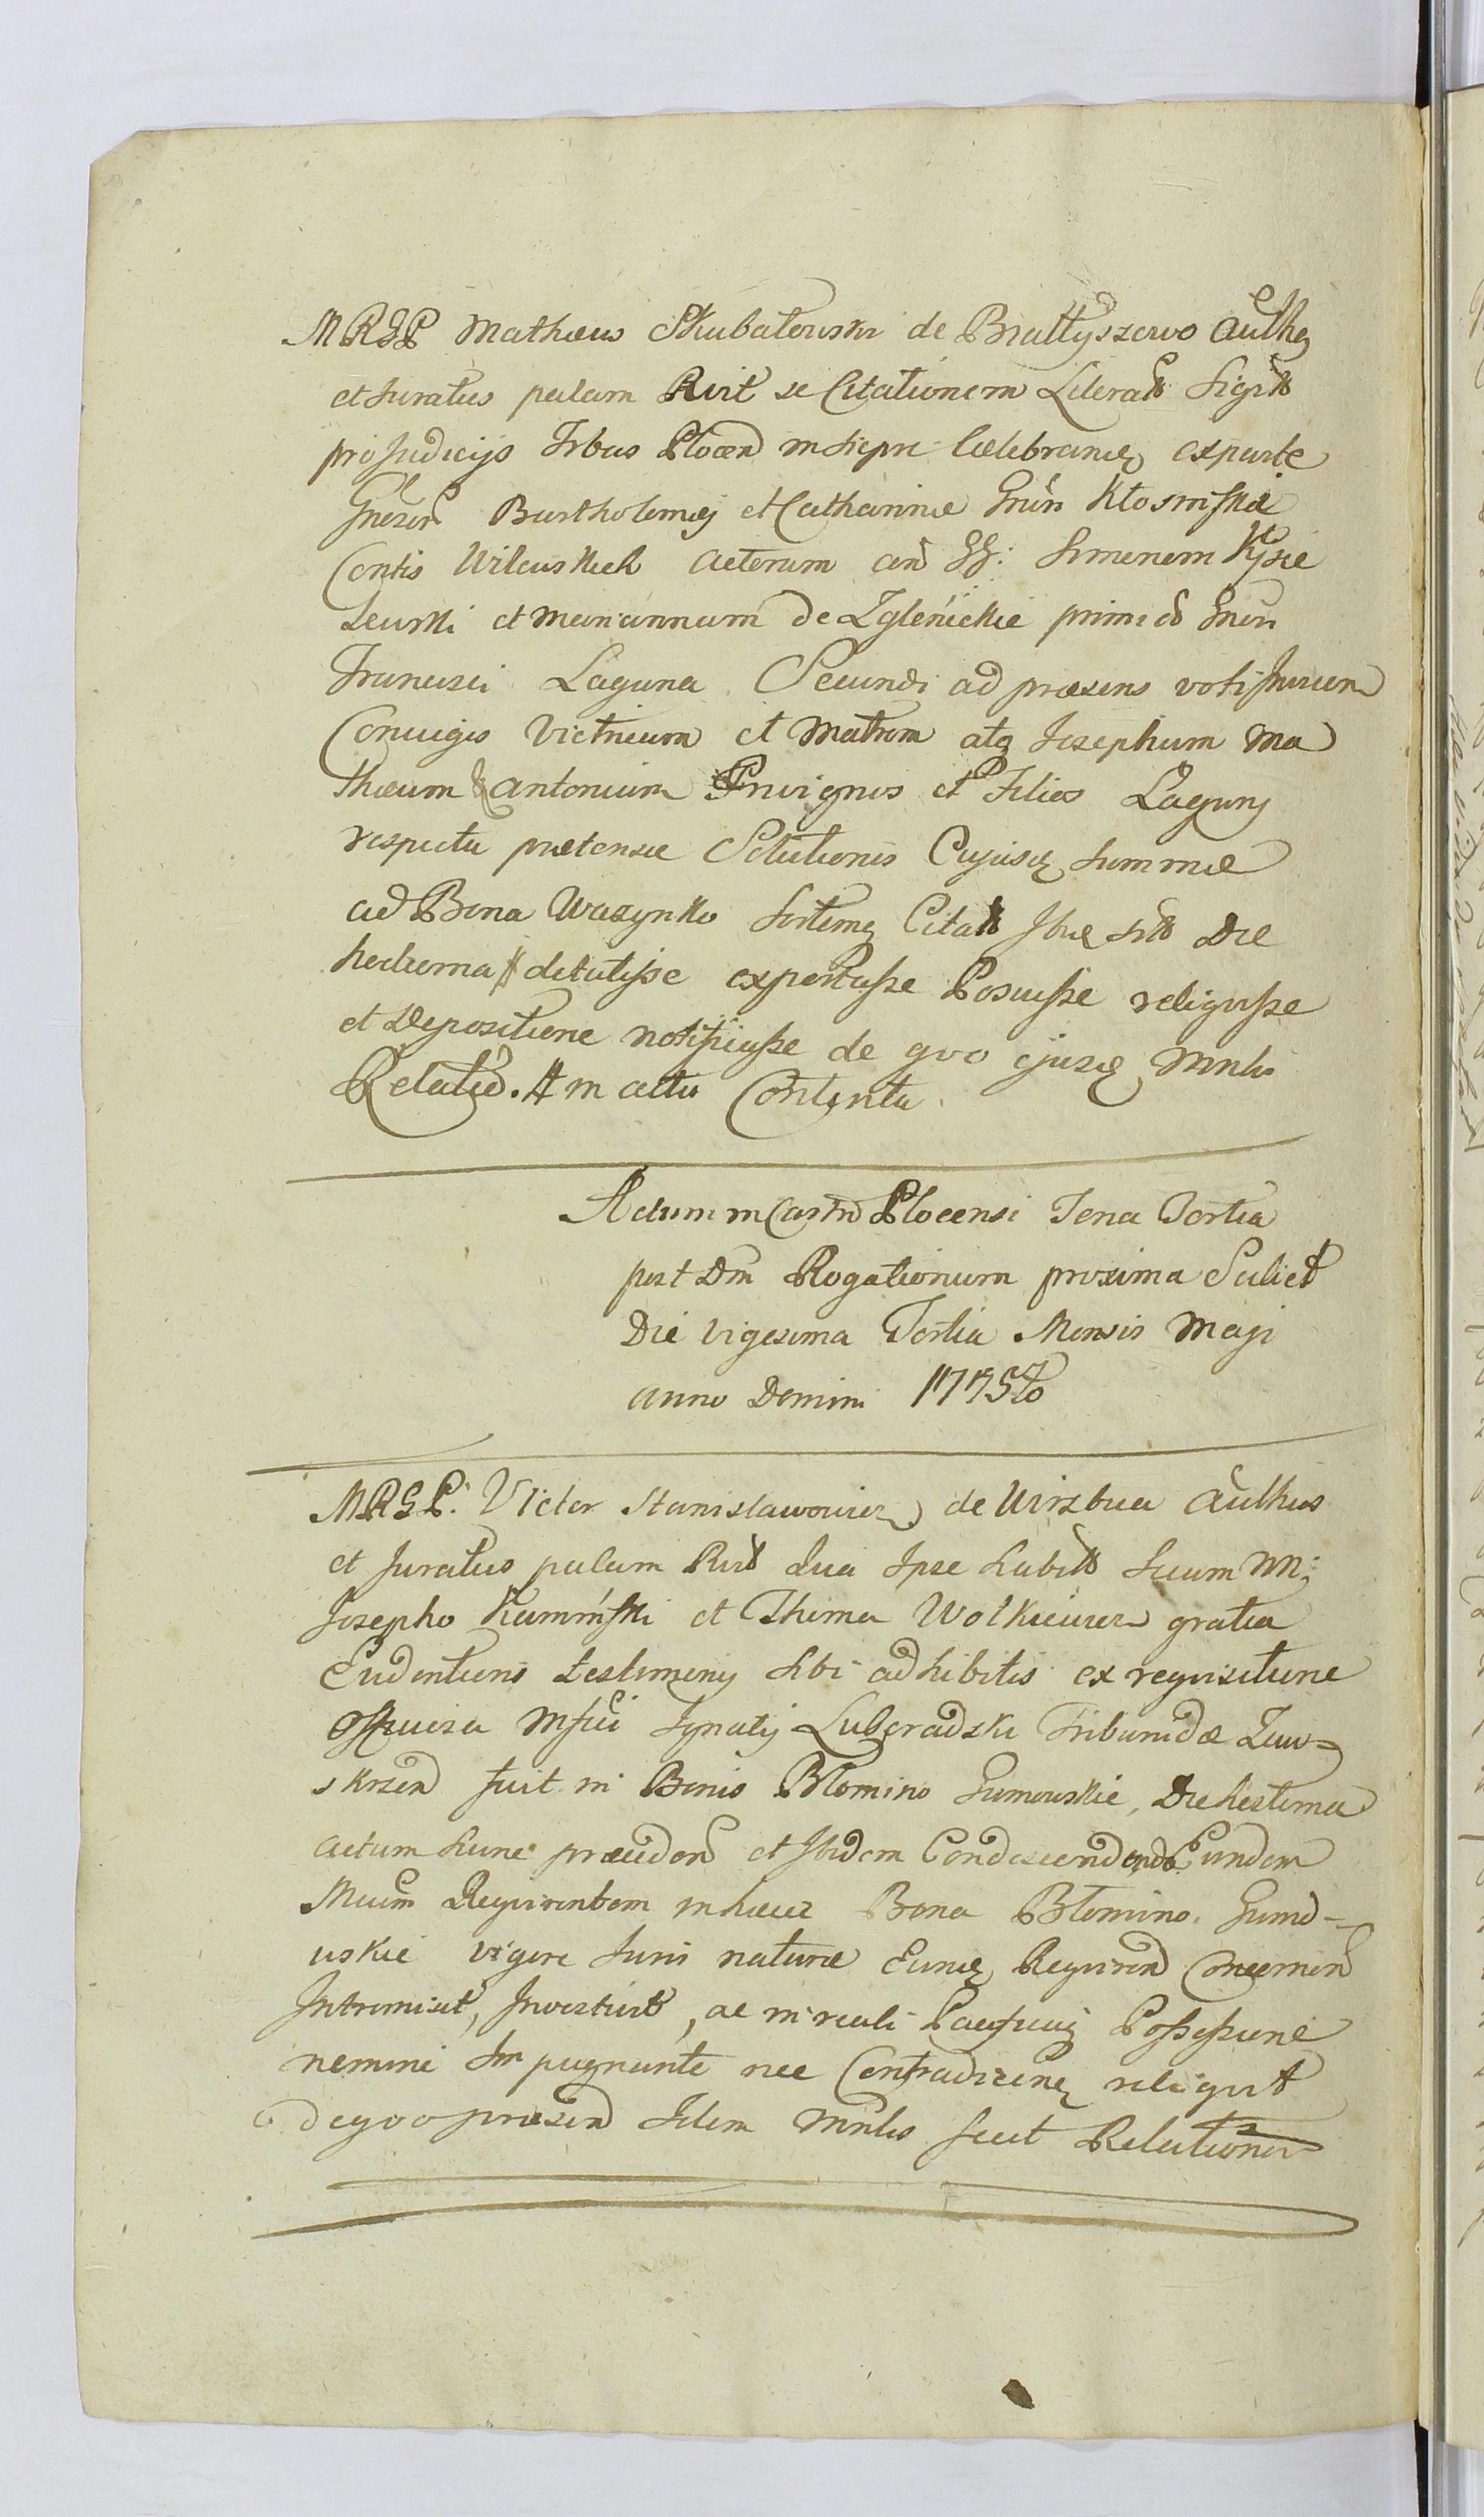 MRGP Mathæus Skubatowski de Brattyszewo Authq
et Juratus palam Rvit se Citationem Literatt Sigitt
pro Judicijs Trbus Plocen in Siepre Cælebranq exparte
Gnesorn Bartholemæj et Catharinæ Gnūn Kłosinskæ
Contis Wilcuskieh actorum con GG: Simonem Kysie
lewski et Mariannam de Zglenickie primi et Gnūn
Francisci Laguna Secundi ad præsens voti
Conuigis Victricum et Matrem atq Josephum Ma
thæum & Antonium Privignos et Filios Laguny
respectu prætensæ Solutionis Cujusq Summæ
ad Bona Wazynko Sortemq Citatt Ibiq sitt Die
hodierna detulisse exportasse Posuisse religisse
et Depositione notificasse de qvo ejusq Mnlis
Relatio. in actu Contenta.
Actum in Castro Plocensi Feria Tertia
post Dm Rogationum proxima Scilict
Die Vigesima Tertia Mensis Maji
Anno Domini 1775to
MRGP. Victor Stanisławowicz de Wirzbica Authus
et Juratus palam Rvit Qvia Ipse habitt Secum NN:
Josepho Kaminski et Thoma Wołkiewicz gratia
Evidentioris testimonij sibi adhibitis ex reqvisitione
Mfici Ignatij Luberadzki Tribunidæ Zaw-
skrzen fuit in Bonis Błomino Gumowskie, Die hesterna
actum hunc præceden et Ibidem Condescendendo Eundem
Mcum Reqvirentem in hæcce Bona Błomino Gumo-
wskie vigore Juris naturæ Eunq Reqviren Concernen
Intromisit, Investivit, ac in reali Pacificaq Possessione
nemine Impugnante nec Contradicenq reliqvit
de qvo præsen Idem Mnlis fecit Relationem